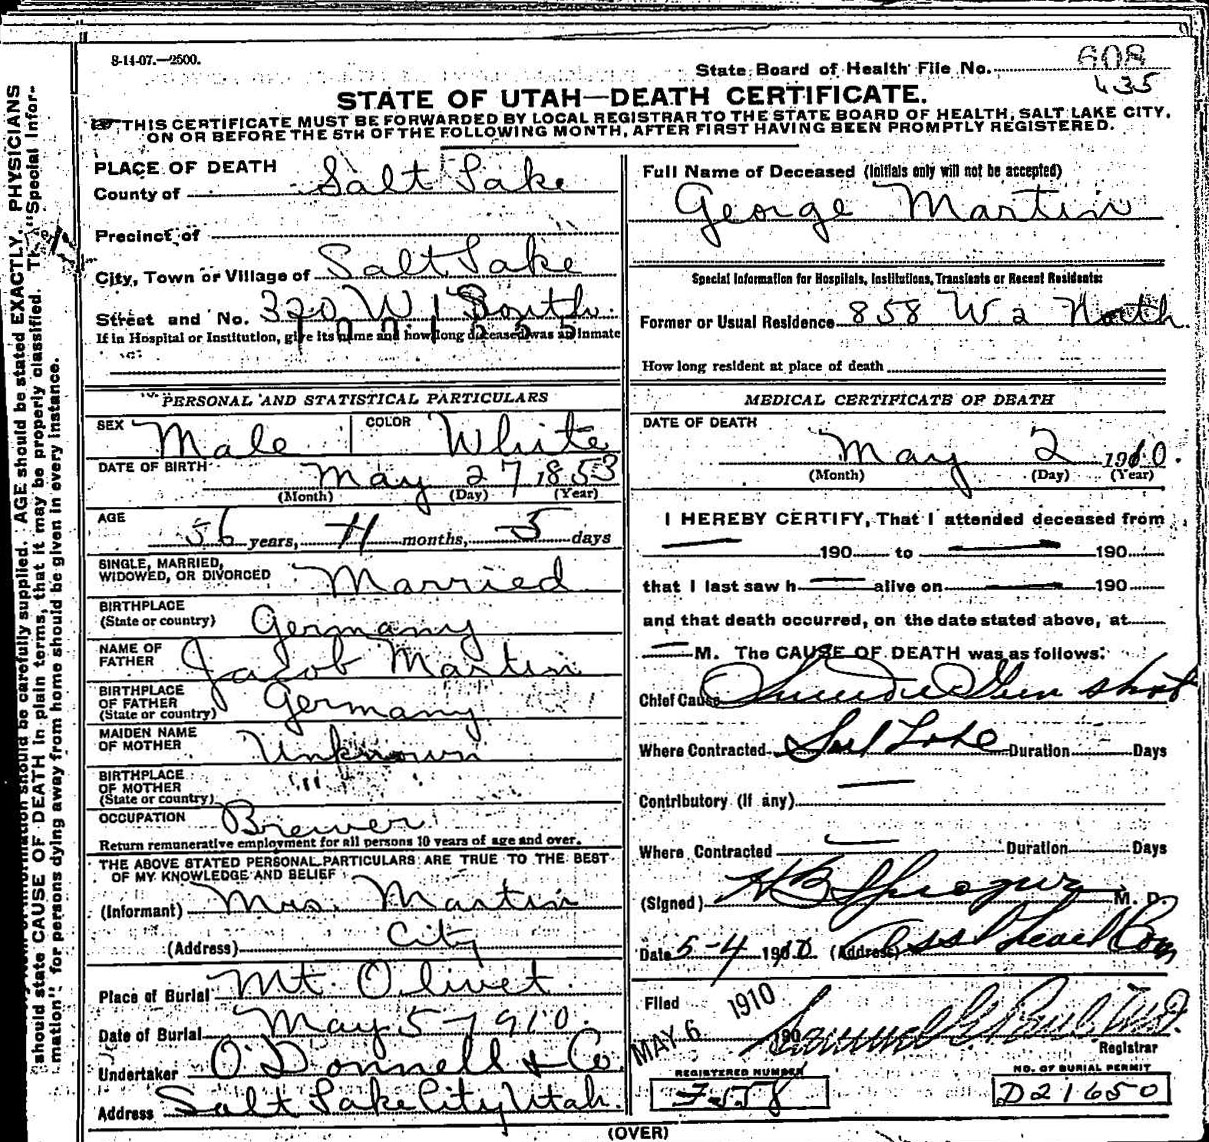 8-14-07.—2500.
State Board of Health File No. 608
435
STATE OF UTAH—DEATH CERTIFICATE.
THIS CERTIFICATE MUST BE FORWARDED BY LOCAL REGISTRAR TO THE STATE BOARD OF HEALTH, SALT LAKE CITY,
ON OR BEFORE THE 5TH OF THE FOLLOWING MONTH, AFTER FIRST HAVING BEEN PROMPTLY REGISTERED.
PLACE OF DEATH
County of Salt Lake
Precinct of
City, Town or Village of Salt Lake
Street and No. 320 W 1 South
If in Hospital or Institution, give its name and how long deceased was an inmate
Full Name of Deceased (Initials only will not be accepted)
George Martin
Special Information for Hospitals, Institutions, Transients or Recent Residents:
Former or Usual Residence 858 W 2 North
How long resident at place of death
PERSONAL AND STATISTICAL PARTICULARS
SEX Male COLOR White
DATE OF BIRTH May 27 1853
(Month) (Day) (Year)
AGE 56 years, 11 months, 5 days
SINGLE, MARRIED,
WIDOWED, OR DIVORCED Married
BIRTHPLACE
(State or country) Germany
NAME OF
FATHER Jacob Martin
BIRTHPLACE
OF FATHER
(State or country) Germany
MAIDEN NAME
OF MOTHER Unknown
BIRTHPLACE
OF MOTHER "
(State or country)
OCCUPATION Brewer
Return remunerative employment for all persons 10 years of age and over.
THE ABOVE STATED PERSONAL PARTICULARS ARE TRUE TO THE BEST
OF MY KNOWLEDGE AND BELIEF
(Informant) Mrs. Martin
(Address) City
Place of Burial Mt. Olivet
Date of Burial May 5-1910.
Undertaker O'Donnell & Co
Address Salt Lake City Utah.
MEDICAL CERTIFICATE OF DEATH
DATE OF DEATH
May 2 1910.
(Month) (Day) (Year)
I HEREBY CERTIFY, That I attended deceased from
190 to 190
that I last saw h alive on 190
and that death occurred, on the date stated above, at
M. The CAUSE OF DEATH was as follows:
Chief Cause Suicide Gun shot
Where Contracted Salt Lake Duration Days
Contributory (If any)
Where Contracted Duration Days
(Signed) H B Sprague M. D.
Date 5-4 1910 (Address)
Filed MAY 6 1910 190
Registrar
REGISTERED NUMBER
NO. OF BURIAL PERMIT
D21650
(OVER)
should state CAUSE OF DEATH in plain terms, that it may be properly classified. The "Special Infor-
mation" for persons dying away from home should be given in every instance.